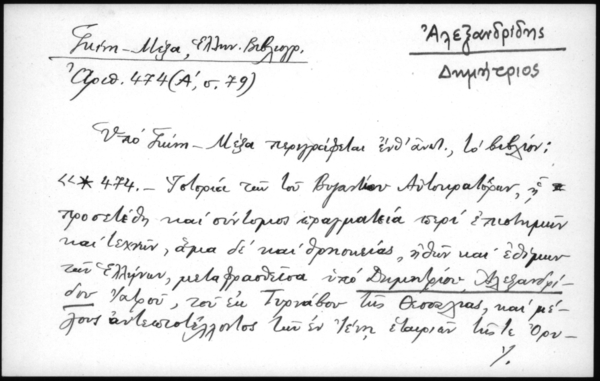 Γκίνη-Μέξα, Ἑλλην. Βιβλιογρ.
Ἀριθ. 474 (Α', σ. 79)
Ἀλεξανδρίδης
Δημήτριος
Ὑπό Γκίνη-Μέξα περιγράφεται ἔνθ' ἀνωτ., τό βιβλίον:
«* 474.- Ἱστορία τῶν τοῦ Βυζαντίου Αὐτοκρατόρων, ᾗ
προσετέθη καί σύντομος πραγματεία περί ἐπιστημῶν
καί τεχνῶν, ἅμα δέ καί θρησκείας, ἠθῶν καί ἐθίμων
τῶν Ἑλλήνων, μεταφρασθεῖσα ὑπό Δημητρίου Ἀλεξανδρί-
δου Ἰατροῦ, τοῦ ἐκ Τυρνάβου τῆς Θεσσαλίας, καί μέ-
λους ἀντεπιστέλλοντος τῶν ἐν Ἰένῃ ἑταιριῶν τῆς τε Ὀρυ-
·/.